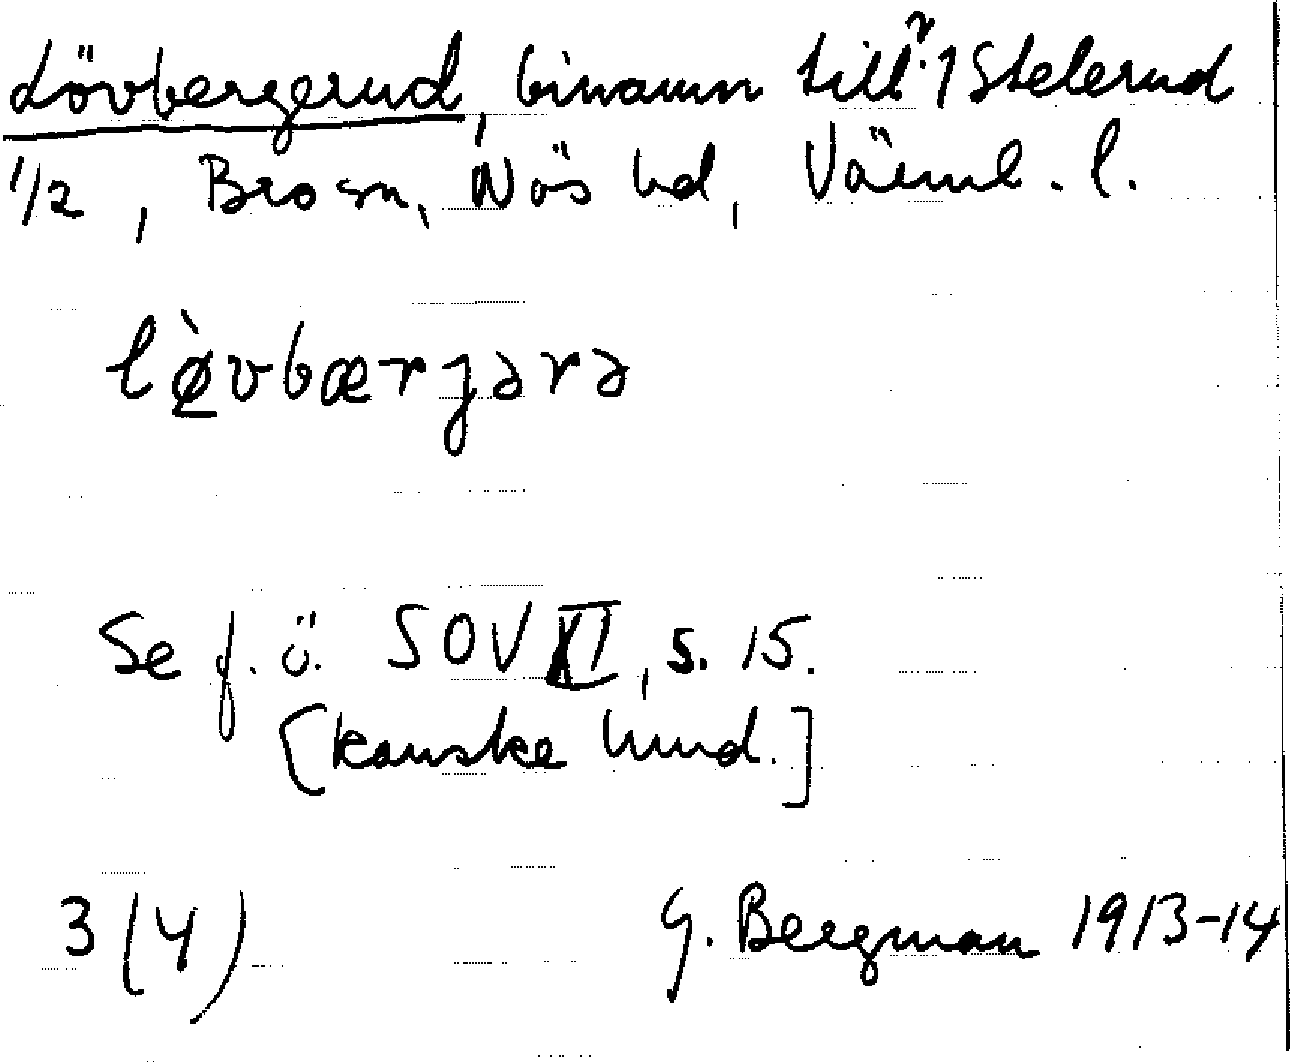 Lövbergerud, binamn till 2:1 Stelerud
1/2, Bro sn, Näs hd, Värml. l.
lø̀vbærjərə
Se f. ö. SOV XI, s. 15.
[kanske hund.]
3 (4) G. Bergman 1913-14